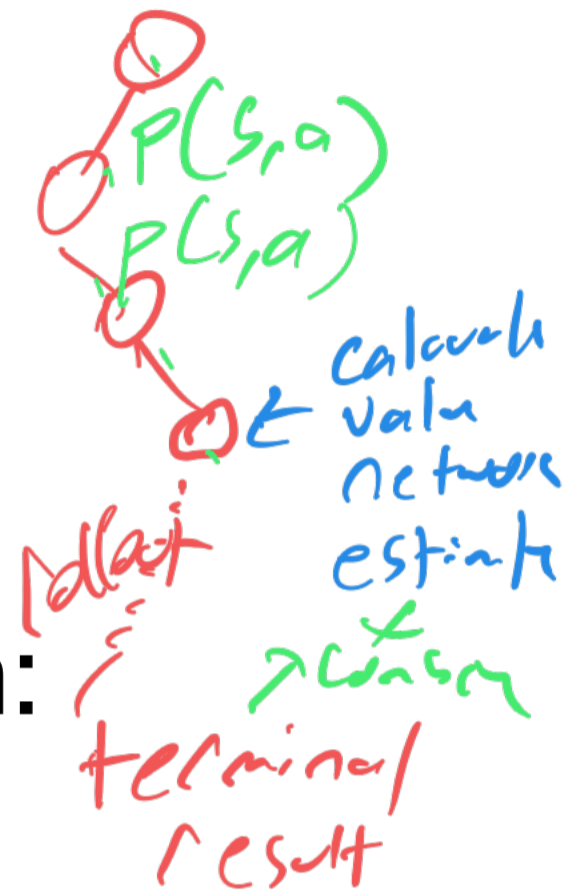 P(s,a)
P(s,a)
calculate
value
network
estimate
rollout
:
terminal
result